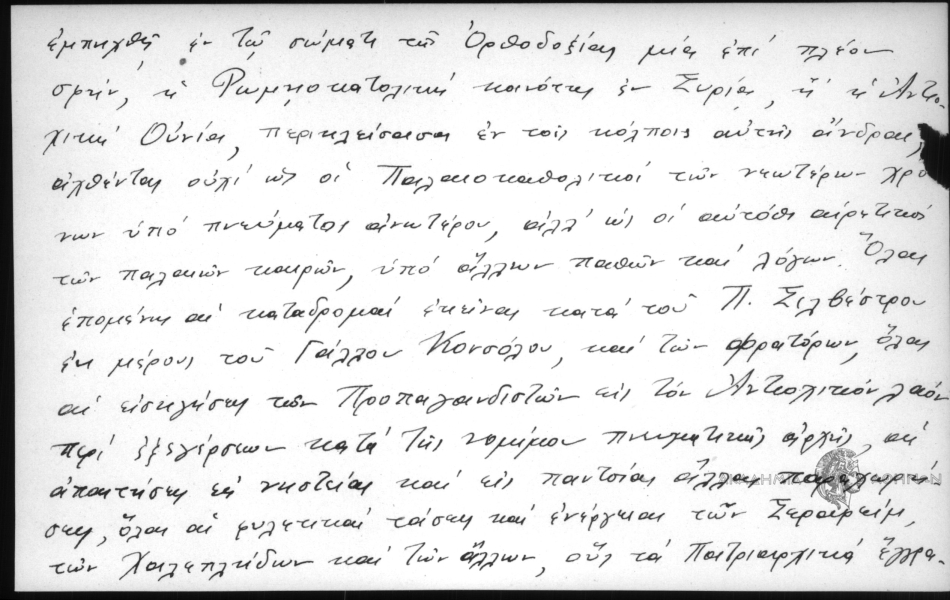 ἐμπηχθῇ ἐν τῷ σώματι τῆς Ὀρθοδοξίας μία ἐπί πλέον
σφήν, ἡ Ρωμηοκατολική κοινότης ἐν Συρίᾳ, ἤ ἡ Ἀντιο-
χική Οὐνία, περικλείσασα ἐν τοῖς κόλποις αὐτῆς ἄνδρας,
αχθέντας οὐχί ὡς οἱ Παλαιοκαθολικοί τῶν νεωτέρων χρό
νων ὑπό πνεύματος ἀνωτέρου, ἀλλ' ὡς οἱ αὐτόθι αἱρετικοί
τῶν παλαιῶν καιρῶν, ὑπό ἄλλων παθῶν καί λόγων. Ὅλαι
ἑπομένως αἱ καταδρομαί ἐκεῖναι κατά τοῦ Π. Σιλβέστρου
ἐκ μέρους τοῦ Γάλλου Κονσόλου, καί τῶν φρατόρων, ὅλαι
αἱ εἰσηγήσεις τῶν Προπαγανδιστῶν εἰς τόν Ἀντιοχικόν λαόν
περί ἐξεγέρσεων κατά τῆς νομίμου πνευματικῆς ἀρχῆς, αἱ
ἀπαιτήσεις εἰς νηστείας καί εἰς παντοίας ἄλλας παραχωρή
σεις, ὅλαι αἱ φυλετικαί τάσεις καί ἐνέργειαι τῶν Σεραφείμ,
τῶν Χαλεπλήδων καί τῶν ἄλλων, οὕς τά Πατριαρχικά ἔγγρα-